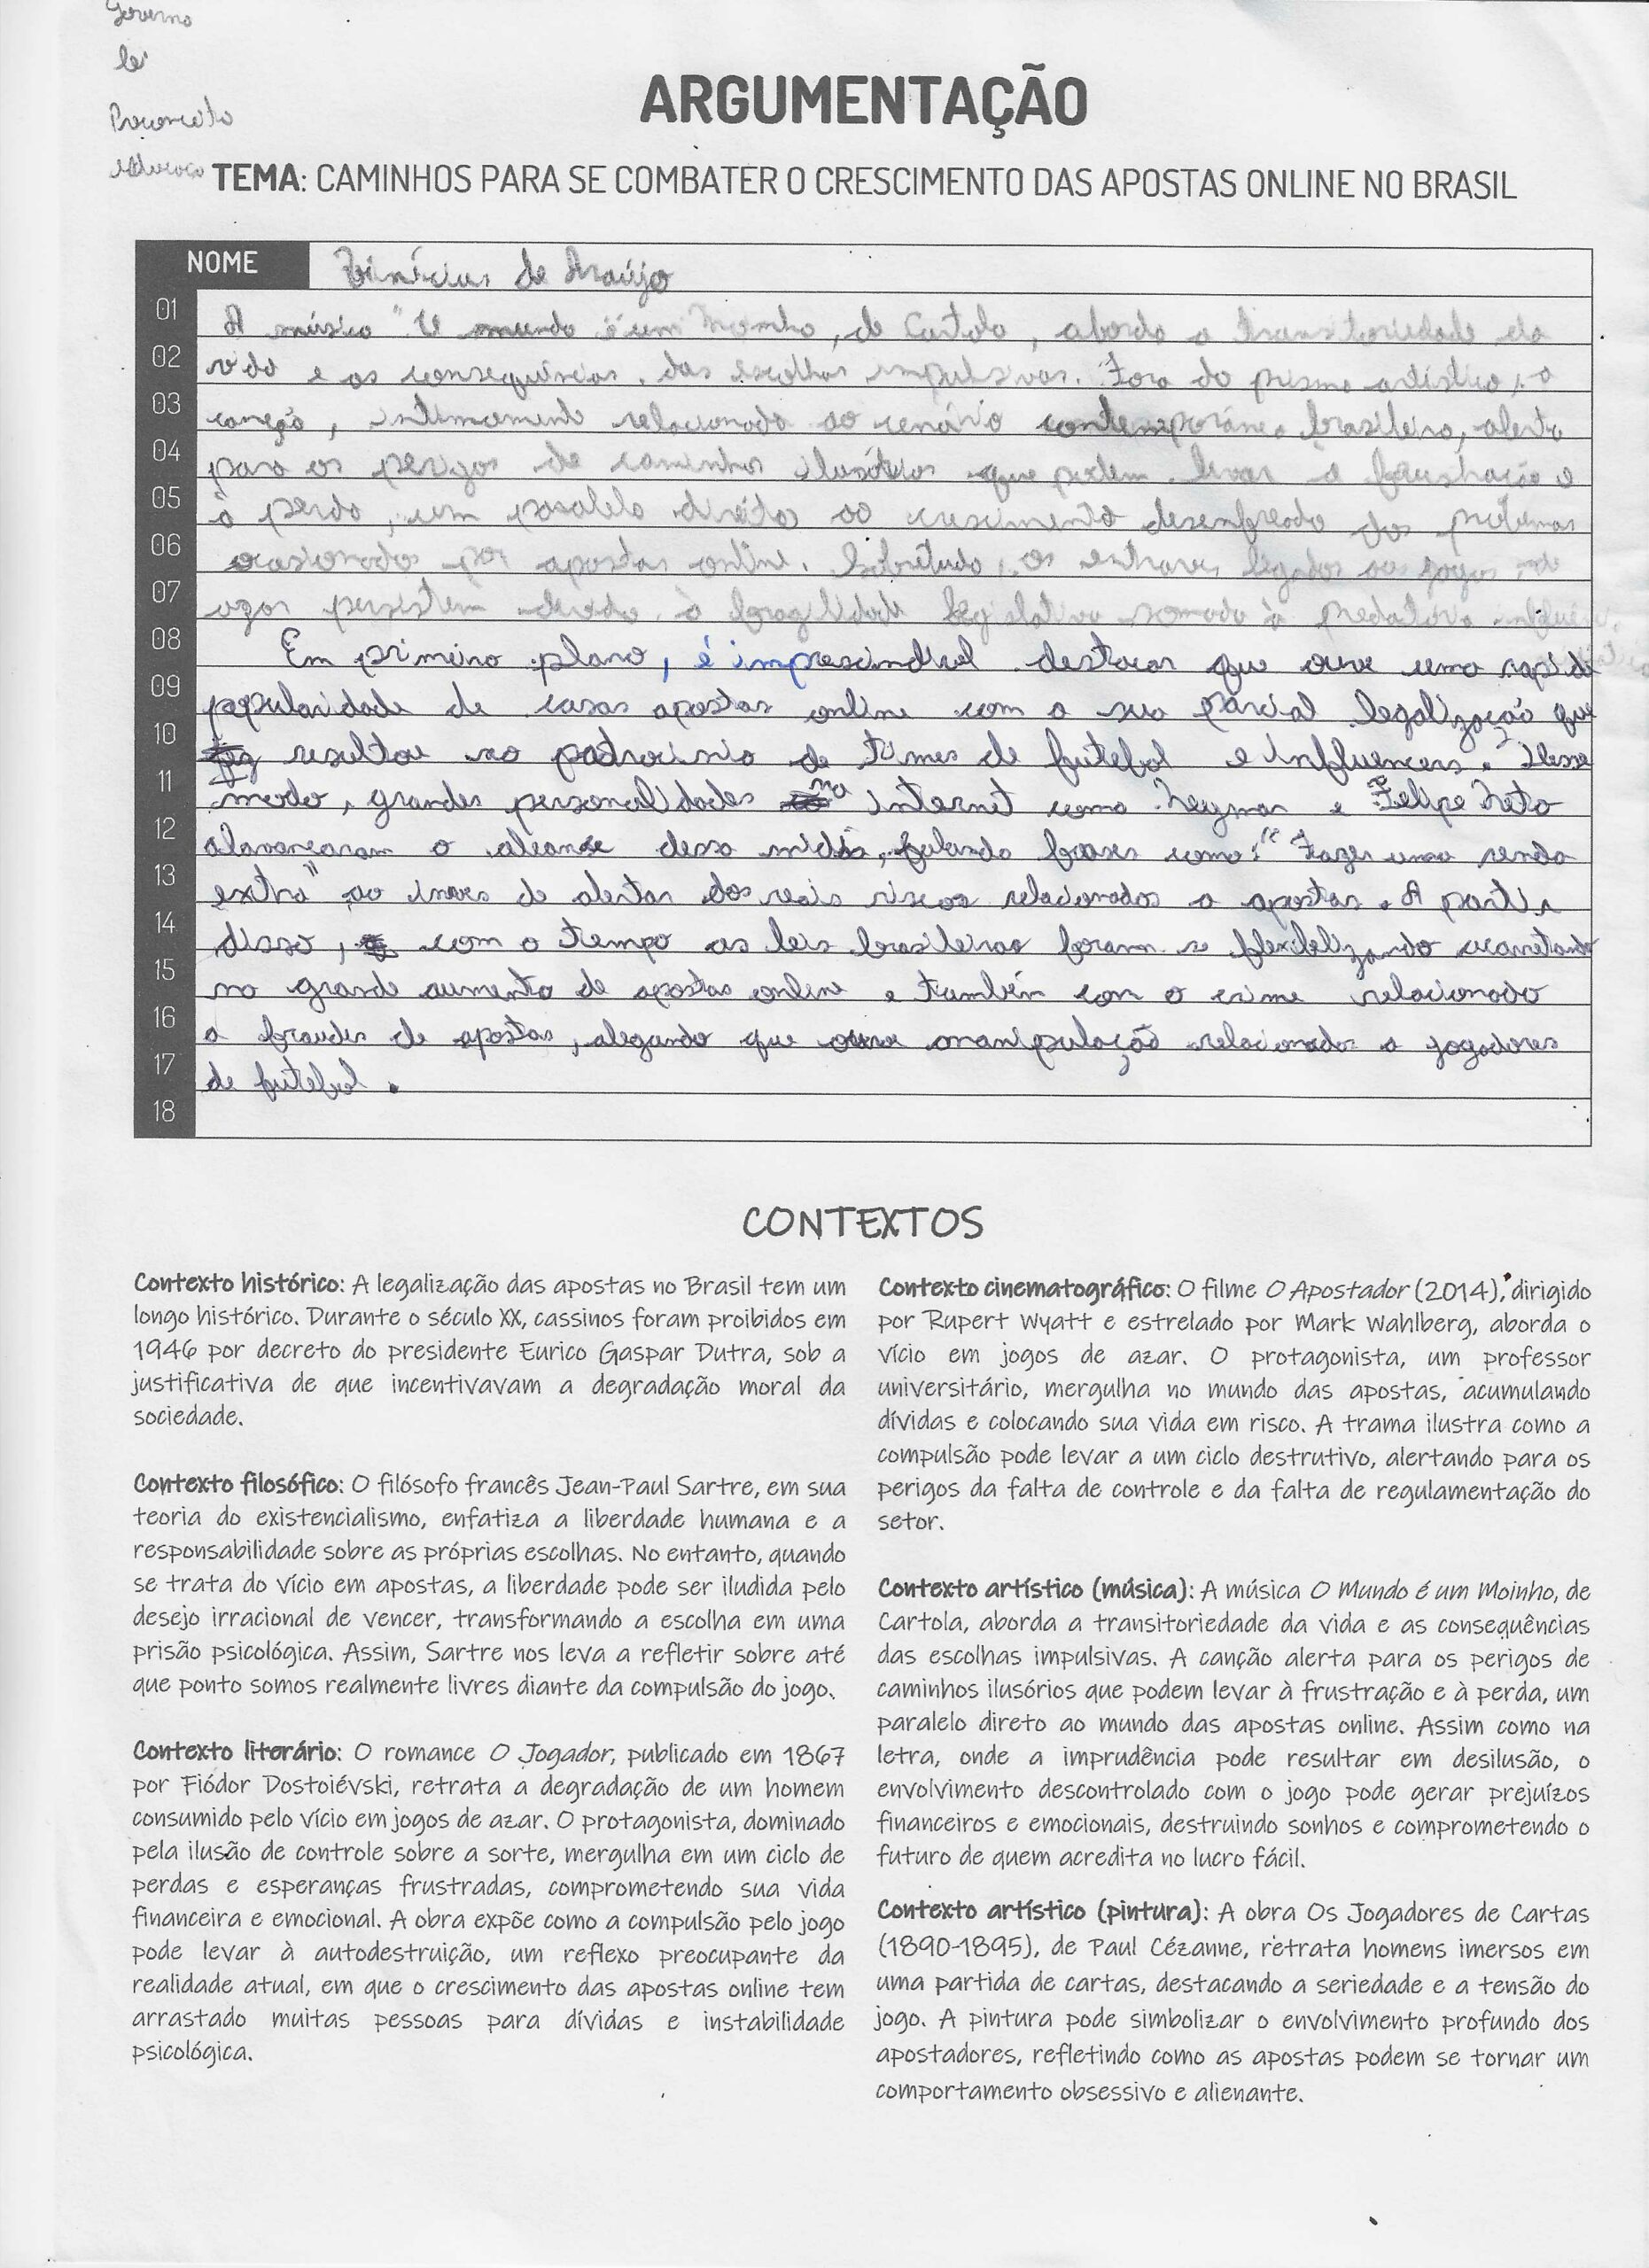 Governo
lei
ARGUMENTAÇÃO
TEMA: CAMINHOS PARA SE COMBATER O CRESCIMENTO DAS APOSTAS ONLINE NO BRASIL
NOME Vinícius de Araújo
01 A música "O mundo é um Moinho, de Cartola, aborda a transitoriedade da
02 vida e as consequências das escolhas impulsivas. Fora do prisma artístico, a
03 canção, intimamente relacionada ao cenário contemporâneo brasileiro, alerta
04 para os perigos de caminhos ilusórios que podem levar a frustração e
05 à perda, um paralelo direto ao crescimento desenfreado dos
06 ocasionados por apostas online. Sobretudo, os entraves ligados aos jogos de
07 azar persistem devido à fragilidade legislativa somada à predatória
08 Em primeiro plano, é imprescindível destacar que ouve uma rapida
09 popularidade de casas apostas online com a sua parcial legalização que
10 resultou no patrocinio de times de futebol e influencers. Desse
11 modo, grandes personalidades na internet como Neymar e Felipe Neto
12 alavancaram o alcance dessa midia, falando frases como: "Fazer uma renda
13 extra" ao inves de alertar dos reais riscos relacionados a apostas. A partir
14 disso, com o tempo as leis brasileiras foram se flexibilizando acarretando
15 no grande aumento de apostas online e também com o crime relacionado
16 a fraudes de apostas, alegando que ouve manipulação relacionados a jogadores
17 de futebol.
18
CONTEXTOS
Contexto histórico: A legalização das apostas no Brasil tem um
longo histórico. Durante o século XX, cassinos foram proibidos em
1946 por decreto do presidente Eurico Gaspar Dutra, sob a
justificativa de que incentivavam a degradação moral da
sociedade.
Contexto filosófico: O filósofo francês Jean-Paul Sartre, em sua
teoria do existencialismo, enfatiza a liberdade humana e a
responsabilidade sobre as próprias escolhas. No entanto, quando
se trata do vício em apostas, a liberdade pode ser iludida pelo
desejo irracional de vencer, transformando a escolha em uma
prisão psicológica. Assim, Sartre nos leva a refletir sobre até
que ponto somos realmente livres diante da compulsão do jogo.
Contexto literário: O romance O Jogador, publicado em 1867
por Fiódor Dostoiévski, retrata a degradação de um homem
consumido pelo vício em jogos de azar. O protagonista, dominado
pela ilusão de controle sobre a sorte, mergulha em um ciclo de
perdas e esperanças frustradas, comprometendo sua vida
financeira e emocional. A obra expõe como a compulsão pelo jogo
pode levar à autodestruição, um reflexo preocupante da
realidade atual, em que o crescimento das apostas online tem
arrastado muitas pessoas para dívidas e instabilidade
psicológica.
Contexto cinematográfico: O filme O Apostador (2014), dirigido
por Rupert Wyatt e estrelado por Mark Wahlberg, aborda o
vício em jogos de azar. O protagonista, um professor
universitário, mergulha no mundo das apostas, acumulando
dívidas e colocando sua vida em risco. A trama ilustra como a
compulsão pode levar a um ciclo destrutivo, alertando para os
perigos da falta de controle e da falta de regulamentação do
setor.
Contexto artístico (música): A música O Mundo é um Moinho, de
Cartola, aborda a transitoriedade da vida e as consequências
das escolhas impulsivas. A canção alerta para os perigos de
caminhos ilusórios que podem levar à frustração e à perda, um
paralelo direto ao mundo das apostas online. Assim como na
letra, onde a imprudência pode resultar em desilusão, o
envolvimento descontrolado com o jogo pode gerar prejuízos
financeiros e emocionais, destruindo sonhos e comprometendo o
futuro de quem acredita no lucro fácil.
Contexto artístico (pintura): A obra Os Jogadores de Cartas
(1890-1895), de Paul Cézanne, retrata homens imersos em
uma partida de cartas, destacando a seriedade e a tensão do
jogo. A pintura pode simbolizar o envolvimento profundo dos
apostadores, refletindo como as apostas podem se tornar um
comportamento obsessivo e alienante.